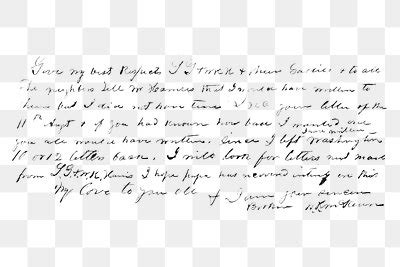 Give my best Respects to T. G. & W. R. H & their Ladies & to all
the neighbors tell Mr Hearnes that I would have written to
him but I did not have time I rec your letter of the
11th Sept & if you had known how bad I wanted one
you all would have written. Since I left Washington
I have written
10 or 12 letters back. I will look for letters next mail
from T. G. & W. R. Haris I hope papa has recovered entirely ere this
My Love to you all & I am your sincere
Brother